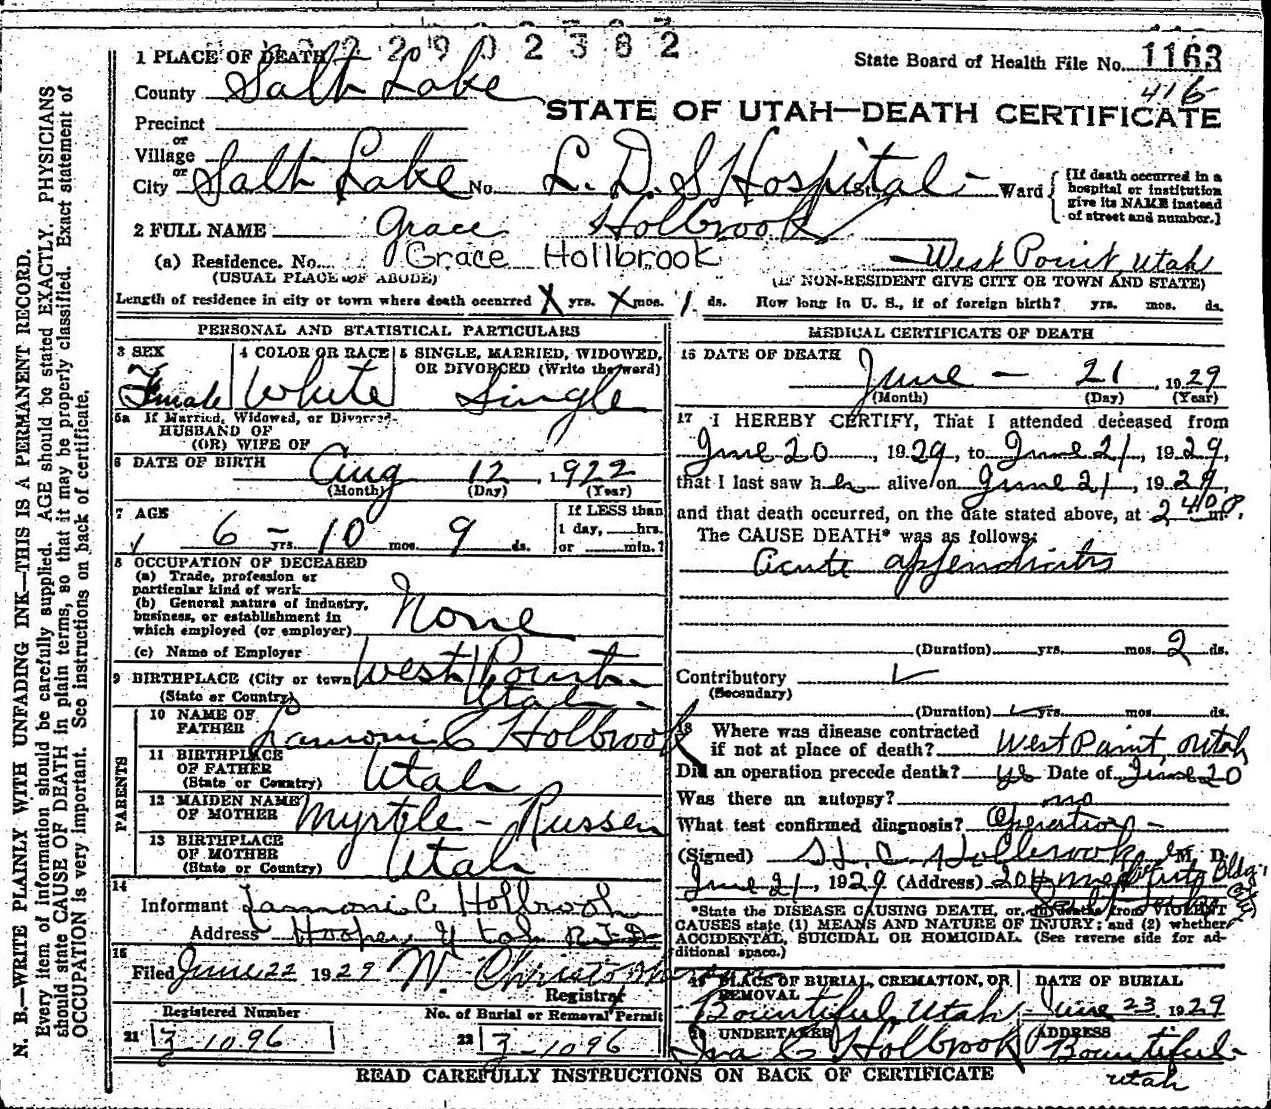 2902382
1 PLACE OF DEATH
State Board of Health File No. 1163
416
County Salt Lake
STATE OF UTAH—DEATH CERTIFICATE
Precinct
or
Village
or
City Salt Lake No. L. D. S Hospital St., Ward
[If death occurred in a hospital or institution give its NAME instead of street and number.]
2 FULL NAME Grace Holbrook
(a) Residence. No. Grace Hollbrook West Point, Utah
(USUAL PLACE OF ABODE) (IF NON-RESIDENT GIVE CITY OR TOWN AND STATE)
Length of residence in city or town where death occurred X yrs. X mos. 1 ds. How long in U. S., if of foreign birth? yrs. mos. ds.
PERSONAL AND STATISTICAL PARTICULARS
3 SEX Female
4 COLOR OR RACE White
5 SINGLE, MARRIED, WIDOWED, OR DIVORCED (Write the word) Single
5a If Married, Widowed, or Divorced
HUSBAND OF
(OR) WIFE OF
6 DATE OF BIRTH Aug 12, 1922
(Month) (Day) (Year)
7 AGE 6 yrs. 10 mos. 9 ds.
If LESS than
1 day, hrs.
or min.?
8 OCCUPATION OF DECEASED
(a) Trade, profession or
particular kind of work
(b) General nature of industry,
business, or establishment in
which employed (or employer) None
(c) Name of Employer
9 BIRTHPLACE (City or town) West Point
(State or Country) Utah
PARENTS
10 NAME OF FATHER Lamoni C Holbrook
11 BIRTHPLACE OF FATHER (State or Country) Utah
12 MAIDEN NAME OF MOTHER Myrtle - Russell
13 BIRTHPLACE OF MOTHER (State or Country) Utah
14
Informant Lamoni C Holbrook
Address Hooper Utah R.F.D
15
Filed June 22 1929 W.
Registrar
Registered Number No. of Burial or Removal Permit
21 3-1096 22 3-1096
MEDICAL CERTIFICATE OF DEATH
16 DATE OF DEATH
June - 21, 1929
(Month) (Day) (Year)
17 I HEREBY CERTIFY, That I attended deceased from
June 20, 1929, to June 21, 1929,
that I last saw her alive on June 21, 1929
and that death occurred, on the date stated above, at 2 40 P. m.
The CAUSE DEATH* was as follows:
acute appendicitis
(Duration) yrs. mos. 2 ds.
Contributory
(Secondary)
(Duration) yrs. mos. ds.
18 Where was disease contracted
if not at place of death? West Point Utah
Did an operation precede death? yes Date of June 20
Was there an autopsy? no
What test confirmed diagnosis? Operation -
(Signed) Holbrook M. D.
June 21, 1929 (Address) 204 Bldg.
*State the DISEASE CAUSING DEATH, or, in deaths from VIOLENT
CAUSES state (1) MEANS AND NATURE OF INJURY; and (2) whether
ACCIDENTAL, SUICIDAL OR HOMICIDAL. (See reverse side for ad-
ditional space.)
19 PLACE OF BURIAL, CREMATION, OR REMOVAL Bountiful, Utah
DATE OF BURIAL June 23 1929
20 UNDERTAKER Ira C Holbrook
ADDRESS Bountiful Utah
READ CAREFULLY INSTRUCTIONS ON BACK OF CERTIFICATE
N. B.—WRITE PLAINLY WITH UNFADING INK—THIS IS A PERMANENT RECORD.
Every item of information should be carefully supplied. AGE should be stated EXACTLY. PHYSICIANS
should state CAUSE OF DEATH in plain terms, so that it may be properly classified. Exact statement of
OCCUPATION is very important. See instructions on back of certificate.